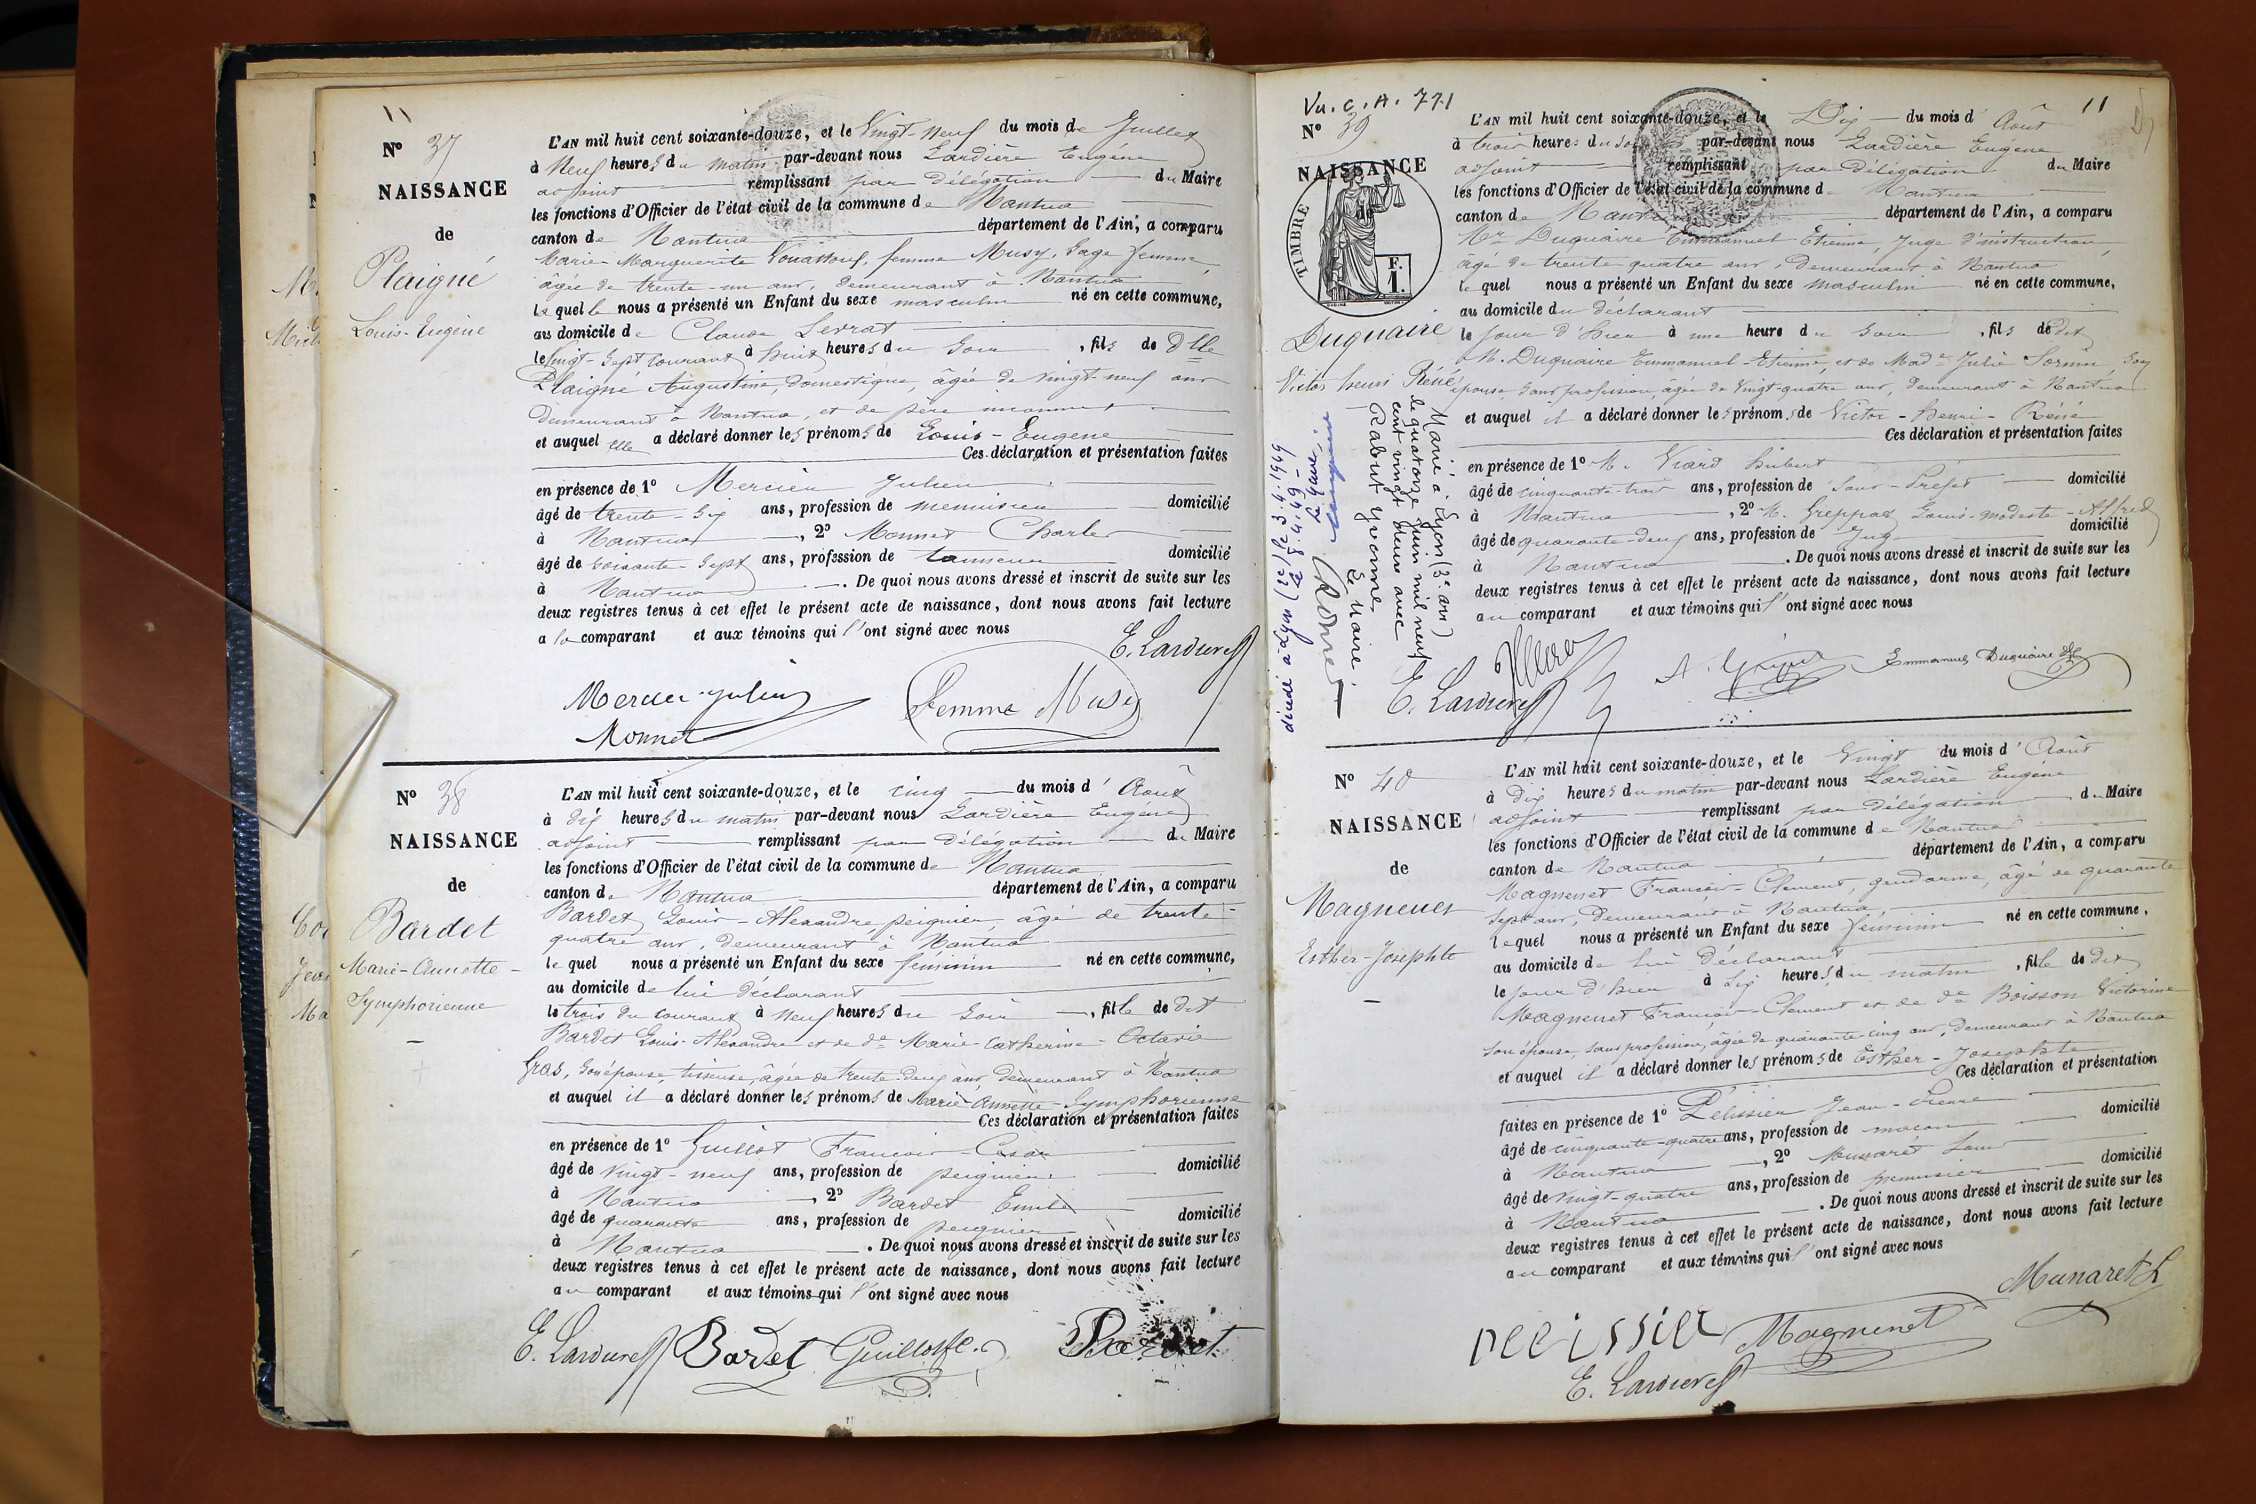 11
N° 37
NAISSANCE
de
Plaigné
Louis-Eugène
L'AN mil huit cent soixante-douze, et le Vingt-Neuf du mois de Juillet
à Neuf heures du matin par-devant nous Lardière Eugène
adjoint remplissant par délégation du Maire
les fonctions d'Officier de l'état civil de la commune de Nantua
canton de Nantua département de l'Ain, a comparu
Marie-Marguerite femme Musy, Sage femme,
âgée de trente-un ans, demeurant à Nantua
laquelle nous a présenté un Enfant du sexe masculin né en cette commune,
au domicile de Claude Serrat
le vingt-sept courant à huit heures du soir, fils de Dlle
Plaigné Augustine, domestique, âgée de vingt-neuf ans
demeurant à Nantua, et de père inconnu
et auquel elle a déclaré donner les prénoms de Louis-Eugène
Ces déclaration et présentation faites
en présence de 1° Mercier Julien
âgé de trente-six ans, profession de menuisier domicilié
à Nantua, 2° Monnet Charles
âgé de soixante-sept ans, profession de tanneur domicilié
à Nantua. De quoi nous avons dressé et inscrit de suite sur les
deux registres tenus à cet effet le présent acte de naissance, dont nous avons fait lecture
a la comparant et aux témoins qui l'ont signé avec nous
E. Lardière
Mercier julien
Femme Musy
Monnet
N° 38
NAISSANCE
de
Bardet
Marie-Annette-
Symphorienne
L'AN mil huit cent soixante-douze, et le cinq du mois d'Août
à dix heures du matin par-devant nous Lardière Eugène
adjoint remplissant par délégation du Maire
les fonctions d'Officier de l'état civil de la commune de Nantua
canton de Nantua département de l'Ain, a comparu
Bardet Louis-Alexandre, peignier, âgé de trente-
quatre ans, demeurant à Nantua
lequel nous a présenté un Enfant du sexe féminin né en cette commune,
au domicile de lui déclarant
le trois du courant à Neuf heures du soir, fille de dit
Bardet Louis-Alexandre et de de Marie-Catherine-Octavie
Gras, son épouse, tisseuse, âgée de trente-deux ans, demeurant à Nantua
et auquel il a déclaré donner les prénoms de Marie-Annette-Symphorienne
Ces déclaration et présentation faites
en présence de 1° Guillot François-César
âgé de vingt-neuf ans, profession de peignier domicilié
à Nantua, 2° Bardet Emile
âgé de quarante ans, profession de peignier domicilié
à Nantua. De quoi nous avons dressé et inscrit de suite sur les
deux registres tenus à cet effet le présent acte de naissance, dont nous avons fait lecture
au comparant et aux témoins qui l'ont signé avec nous
E. Lardière Bardet Guillot Bardet
Vu. C. A. 771
11
N° 39
NAISSANCE
de
TIMBRE
F.
1.
Duquaire
Victor henri Réné
L'AN mil huit cent soixante-douze, et le Dix du mois d'Août
à trois heures du soir par-devant nous Lardière Eugène
adjoint remplissant par délégation du Maire
les fonctions d'Officier de l'état civil de la commune de Nantua
canton de Nantua département de l'Ain, a comparu
Mr Duquaire Emmanuel-Etienne, Juge d'instruction,
âgé de trente-quatre ans, demeurant à Nantua
lequel nous a présenté un Enfant du sexe masculin né en cette commune,
au domicile du déclarant
le jour d'hier à une heure du soir, fils de dit
M. Duquaire Emmanuel-Etienne, et de Made Julie son
épouse, sans profession, âgée de Vingt-quatre ans, demeurant à Nantua
et auquel il a déclaré donner les prénoms de Victor-Henri-Réné
Ces déclaration et présentation faites
en présence de 1° M. Viard hubert
âgé de cinquante-trois ans, profession de Sous-Préfet domicilié
à Nantua, 2° M. Louis-modeste-Alfred
âgé de quarante-deux ans, profession de Juge domicilié
à Nantua. De quoi nous avons dressé et inscrit de suite sur les
deux registres tenus à cet effet le présent acte de naissance, dont nous avons fait lecture
au comparant et aux témoins qui l'ont signé avec nous
E. Lardière
Emmanuel Duquaire
Marié à Lyon (3e arr)
le quatorze juin mil neuf
cent vingt deux avec
Rabut Yvonne
Le Maire.
décédé à Lyon (2e) le 3.4.1949
le 8.4.49 -
Le Maire,
N° 40
NAISSANCE
de
Magnenet
Esther-Josephte
L'AN mil huit cent soixante-douze, et le Vingt du mois d'Août
à Dix heures du matin par-devant nous Lardière Eugène
adjoint remplissant par délégation du Maire
les fonctions d'Officier de l'état civil de la commune de Nantua
canton de Nantua département de l'Ain, a comparu
Magnenet François-Clément, gendarme, âgé de quarante
sept ans, demeurant à Nantua
lequel nous a présenté un Enfant du sexe féminin né en cette commune,
au domicile de lui déclarant
le jour d'hier à six heures du matin, fille de dit
Magnenet François-Clément et de de Boisson Victorine
son épouse, sans profession, âgée de quarante cinq ans, demeurant à Nantua
et auquel il a déclaré donner les prénoms de Esther-Josephte
Ces déclaration et présentation
faites en présence de 1° Pélissier Jean-Pierre
âgé de cinquante-quatre ans, profession de maçon domicilié
à Nantua, 2° Munaret Louis
âgé de vingt-quatre ans, profession de menuisier domicilié
à Nantua. De quoi nous avons dressé et inscrit de suite sur les
deux registres tenus à cet effet le présent acte de naissance, dont nous avons fait lecture
au comparant et aux témoins qui l'ont signé avec nous
Munaret L
pelissier Magnenet
E. Lardière